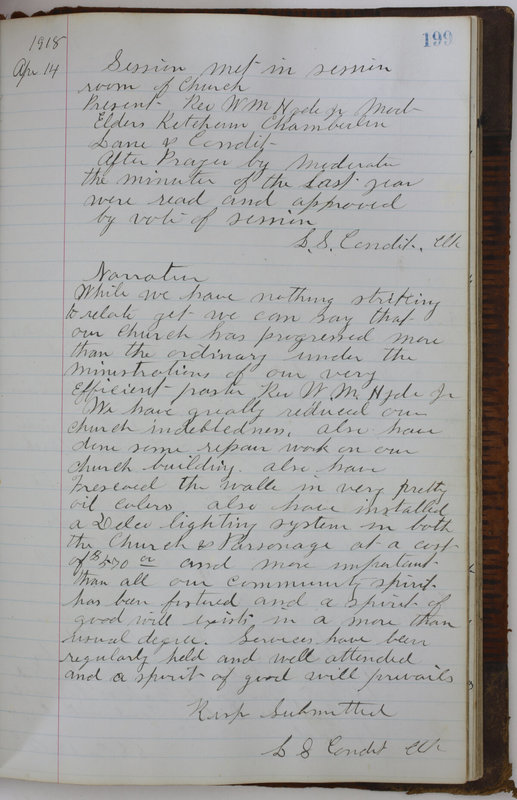 199
1918
Apr. 14
Session met in session
room of Church
Present Rev W M Hyde Jr Mod
Elders Ketcham Chamberlin
Lane & Condit
After Prayer by Moderator
the minutes of the Last year
were read and approved
by vote of session
S. S. Condit. Clk
Narrative
While we have nothing striking
to relate yet we can say that
our Church has progressed more
than the ordinary under the
ministrations of our very
Efficient pastor Rev W. M. Hyde Jr
We have greatly reduced our
church indebtedness, also have
done some repair work on our
church building. also have
frescoed the walls in very pretty
oil colors also have installed
a Delco lighting system in both
the Church & Parsonage at a cost
of $570 00 and more important
than all our community spirit
has been fostered and a spirit of
good will exists in a more than
usual degree. Services have been
regularly held and well attended
and a spirit of good will prevails
Resp Submitted
S S Condit Clk